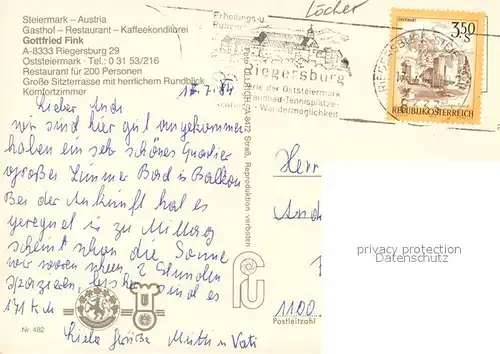 Steiermark – Austria
Gasthof – Restaurant – Kaffeekonditorei
Gottfried Fink
A-8333 Riegersburg 29
Oststeiermark · Tel.: 0 31 53/216
Restaurant für 200 Personen
Große Sitzterrasse mit herrlichem Rundblick
Komfortzimmer
17.7.84
Lieber Andi
wir sind hier gut angekommen
haben ein sehr schönes Quartier
großes Zimmer Bad u Balkon
Bei der Ankunft hat es
geregnet u zu Mittag
scheint schon die Sonne
wir waren schon 2 Stunden
spazieren, bisher sind es
171 km
Viele Grüße Mutti u Vati
Nr. 482
A-8472 Straß, Reproduktion verboten
Löcher
Erholungs- u.
Riegersburg
Perle der Oststeiermark
Wandermöglichkeit
REPUBLIK ÖSTERREICH
3.50
S
Herr
And
1100
Postleitzahl
privacy protection
Datenschutz